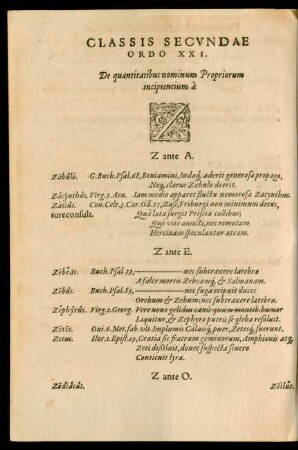 CLASSIS SECVNDAE
ORDO XXI.
De quantitatibus nominum Propriorum
incipientium à
Z
Z ante A.
Zabulō. G. Buch. Psal. 68, Beniamini, Iudaq́, aderit generosa propago,
Neq́, clarus Zabulo deerit.
Zăcynthŭs. Virg. 3. Aen. Iam medio apparet fluctu nemorosa Zacynthus.
Zasiŭs. Con. Celt. 3. Car. Od. 25, Zasi, Friburgi non minimum decus,
iureconsult. Quà lata surgit Priscia collibus;
Qui vite amicti, nec remotam
Hercinam speculantur atram.
Z ante E.
Buch. Psal. 33, nec subtraxere latebræ
A falce mortis Zebeamq́, & Salmanam.
Zebŭs. Buch. Psal. 83, nec fuga eripuit duces
Orebum & Zebum; nec subtraxere latebræ.
Zĕphyrŭs. Virg. 1. Georg. Vere nouo gelidus canis quum montib. humor
Liquitur, & Zephyro putris se gleba resoluit.
Zetēs. Oui. 6. Met. fab. vlt. Implumes Calaisq́, puer, Zetesq́, fuerunt.
Zetus. Hor. 1. Epist. 19, Gratia sic fratrum geminorum, Amphionis atq́,
Zeti dissiluit, donec suspecta seuero
Conticuit lyra.
Z ante O.
Zōdiăcŭs. Zōilŭs.